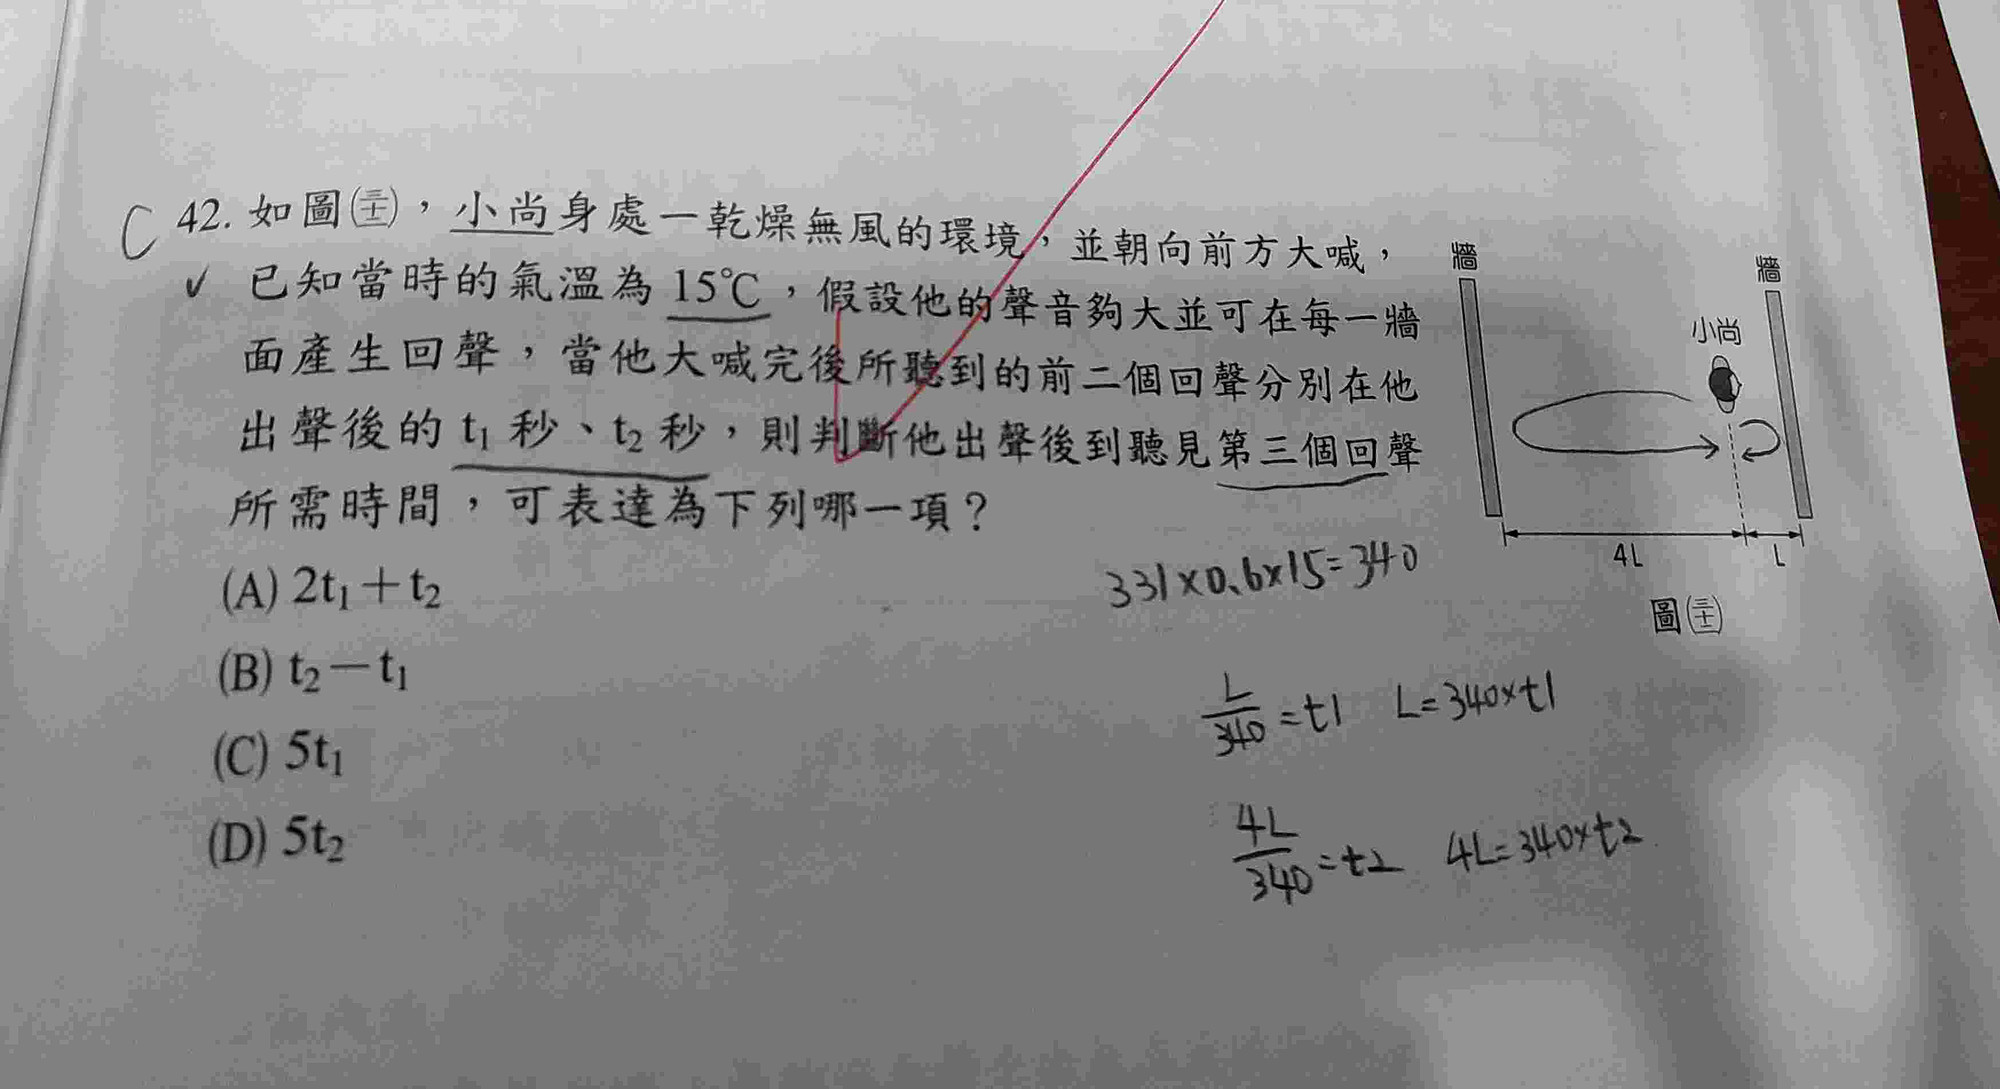 C 42. 如圖(三十),小尚身處一乾燥無風的環境,並朝向前方大喊,
✓ 已知當時的氣溫為 15℃,假設他的聲音夠大並可在每一牆
面產生回聲,當他大喊完後所聽到的前二個回聲分別在他
出聲後的 t₁ 秒、t₂ 秒,則判斷他出聲後到聽見第三個回聲
所需時間,可表達為下列哪一項?
(A) 2t₁+t₂
(B) t₂-t₁
(C) 5t₁
(D) 5t₂
牆
牆
小尚
4L
L
331×0.6×15=340
L/340=t1 L=340×t1
4L/340=t2 4L=340×t2